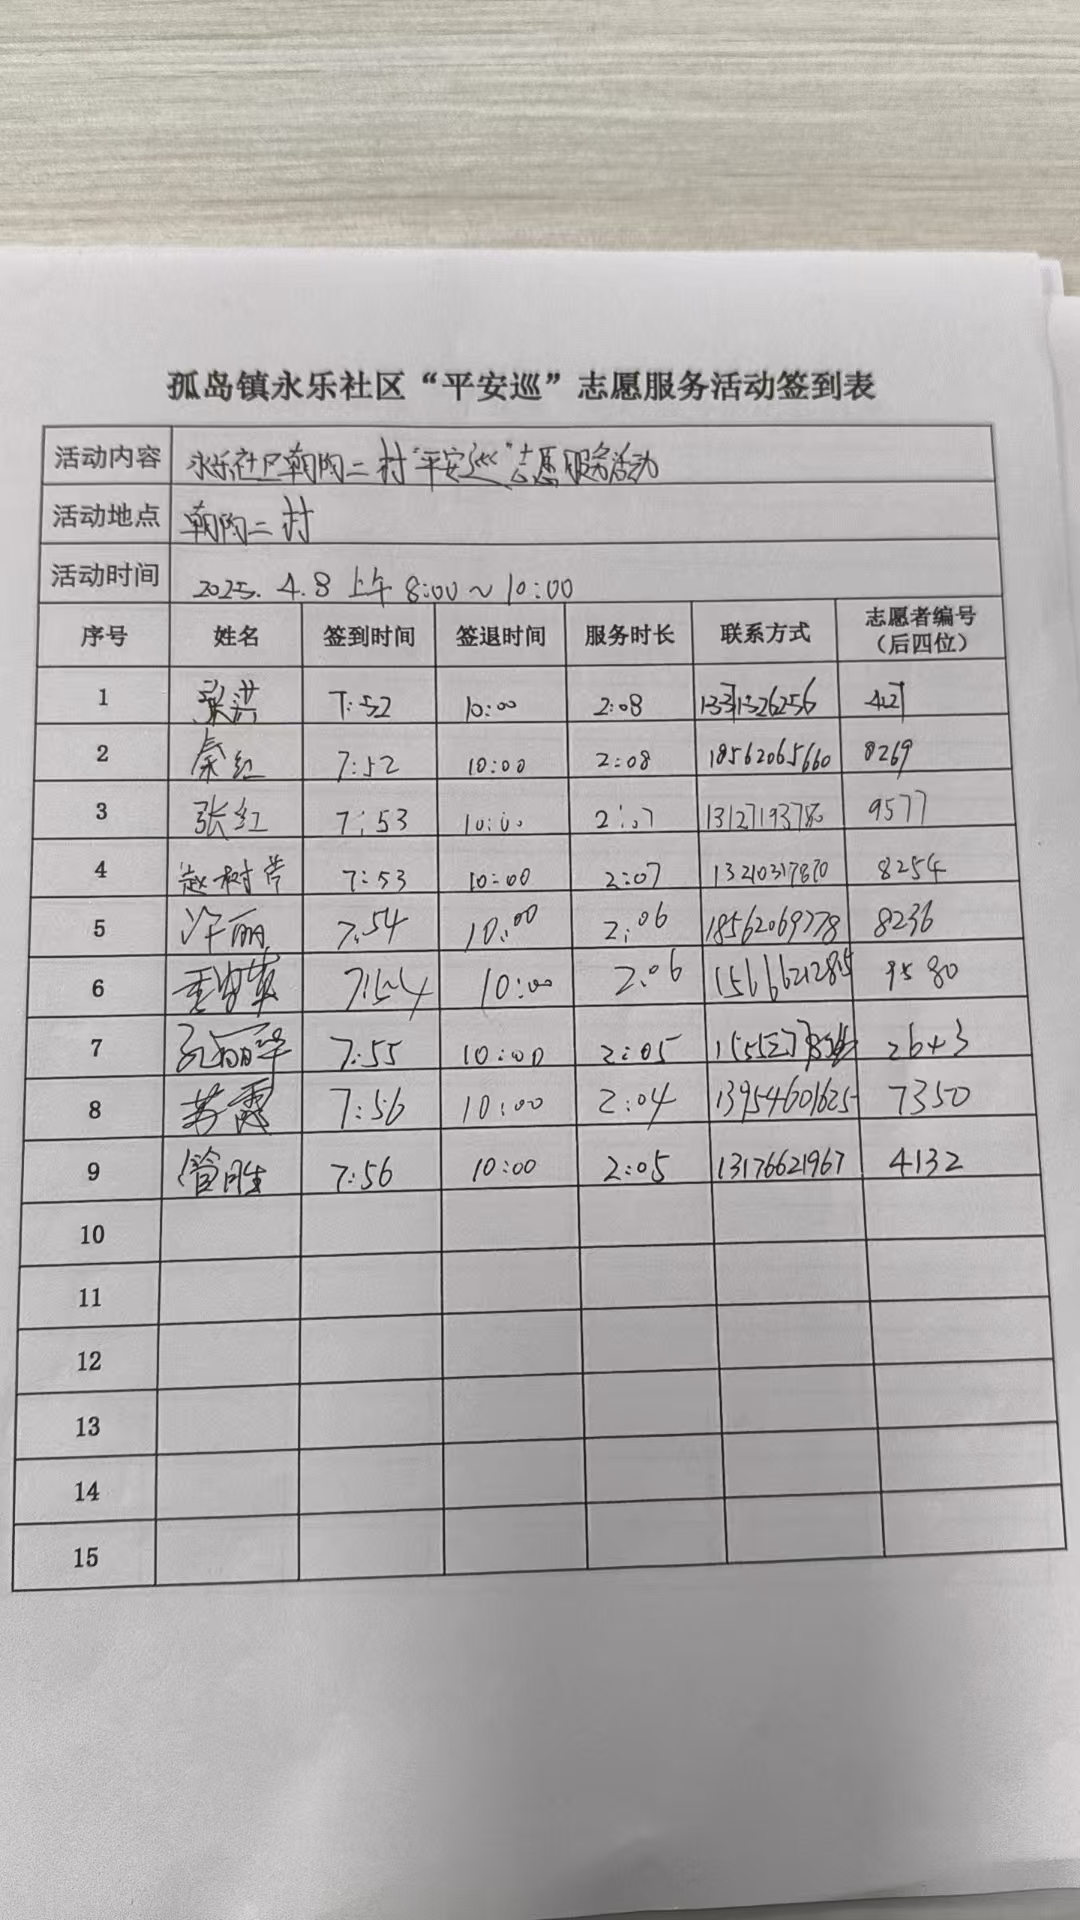 孤岛镇永乐社区“平安巡”志愿服务活动签到表
活动内容 永乐社区朝阳二村“平安巡”志愿服务活动
活动地点 朝阳二村
活动时间 2025.4.8 上午 8:00~10:00
序号 姓名 签到时间 签退时间 服务时长 联系方式 志愿者编号（后四位）
1 7:52 10:00 2:08 13371326256
2 秦红 7:52 10:00 2:08 18562065660 8269
3 张红 7:53 10:00 2:07 9577
4 7:53 10:00 2:07 13210317870 8254
5 许丽 7:54 10:00 2:06 18562069778 8236
6 7:54 10:00 2:06 9580
7 7:55 10:00 2:05
8 7:56 10:00 2:04 13954601625 7350
9 管胜 7:56 10:00 2:05 13176621967 4132
10
11
12
13
14
15